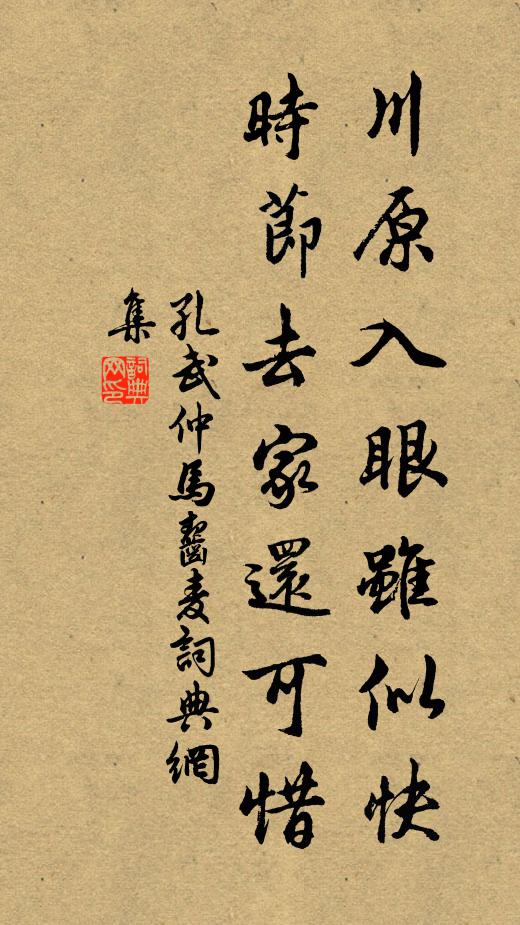 川原入眼雖似快
時節去家還可惜
孔武仲馬齧麦詞典網
集
詞典
网印